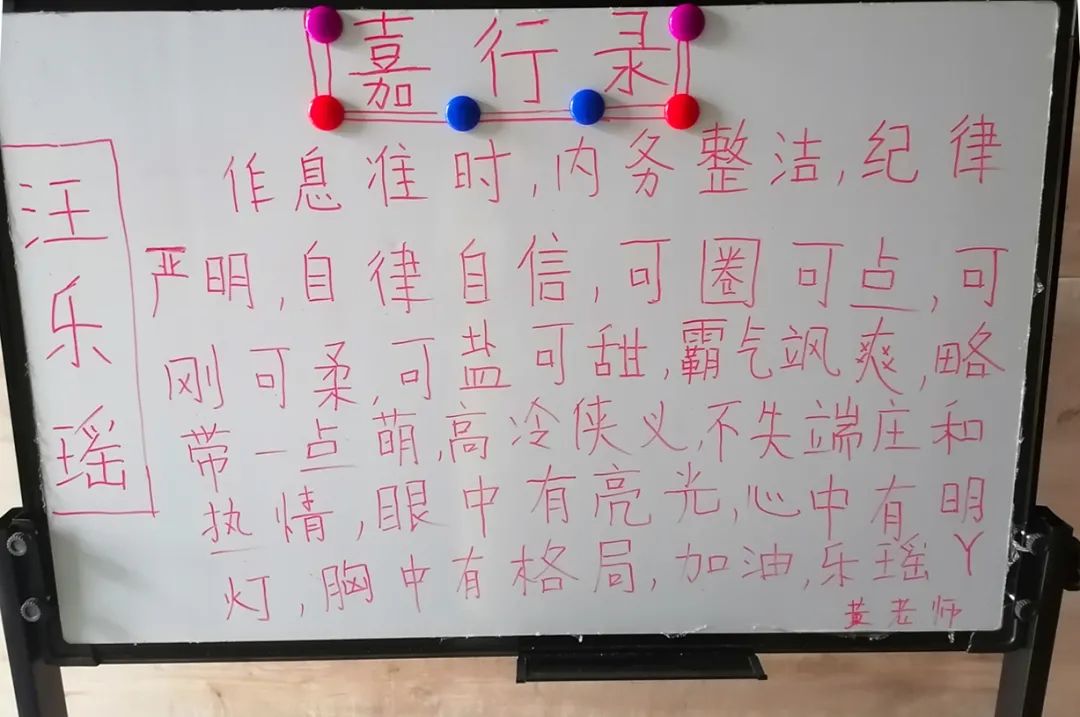 嘉行录
汪乐瑶
作息准时,内务整洁,纪律
严明,自律自信,可圈可点,可
刚可柔,可盐可甜,霸气飒爽,略
带一点萌,高冷侠义,不失端庄和
热情,眼中有亮光,心中有明
灯,胸中有格局,加油,乐瑶Y
黄老师